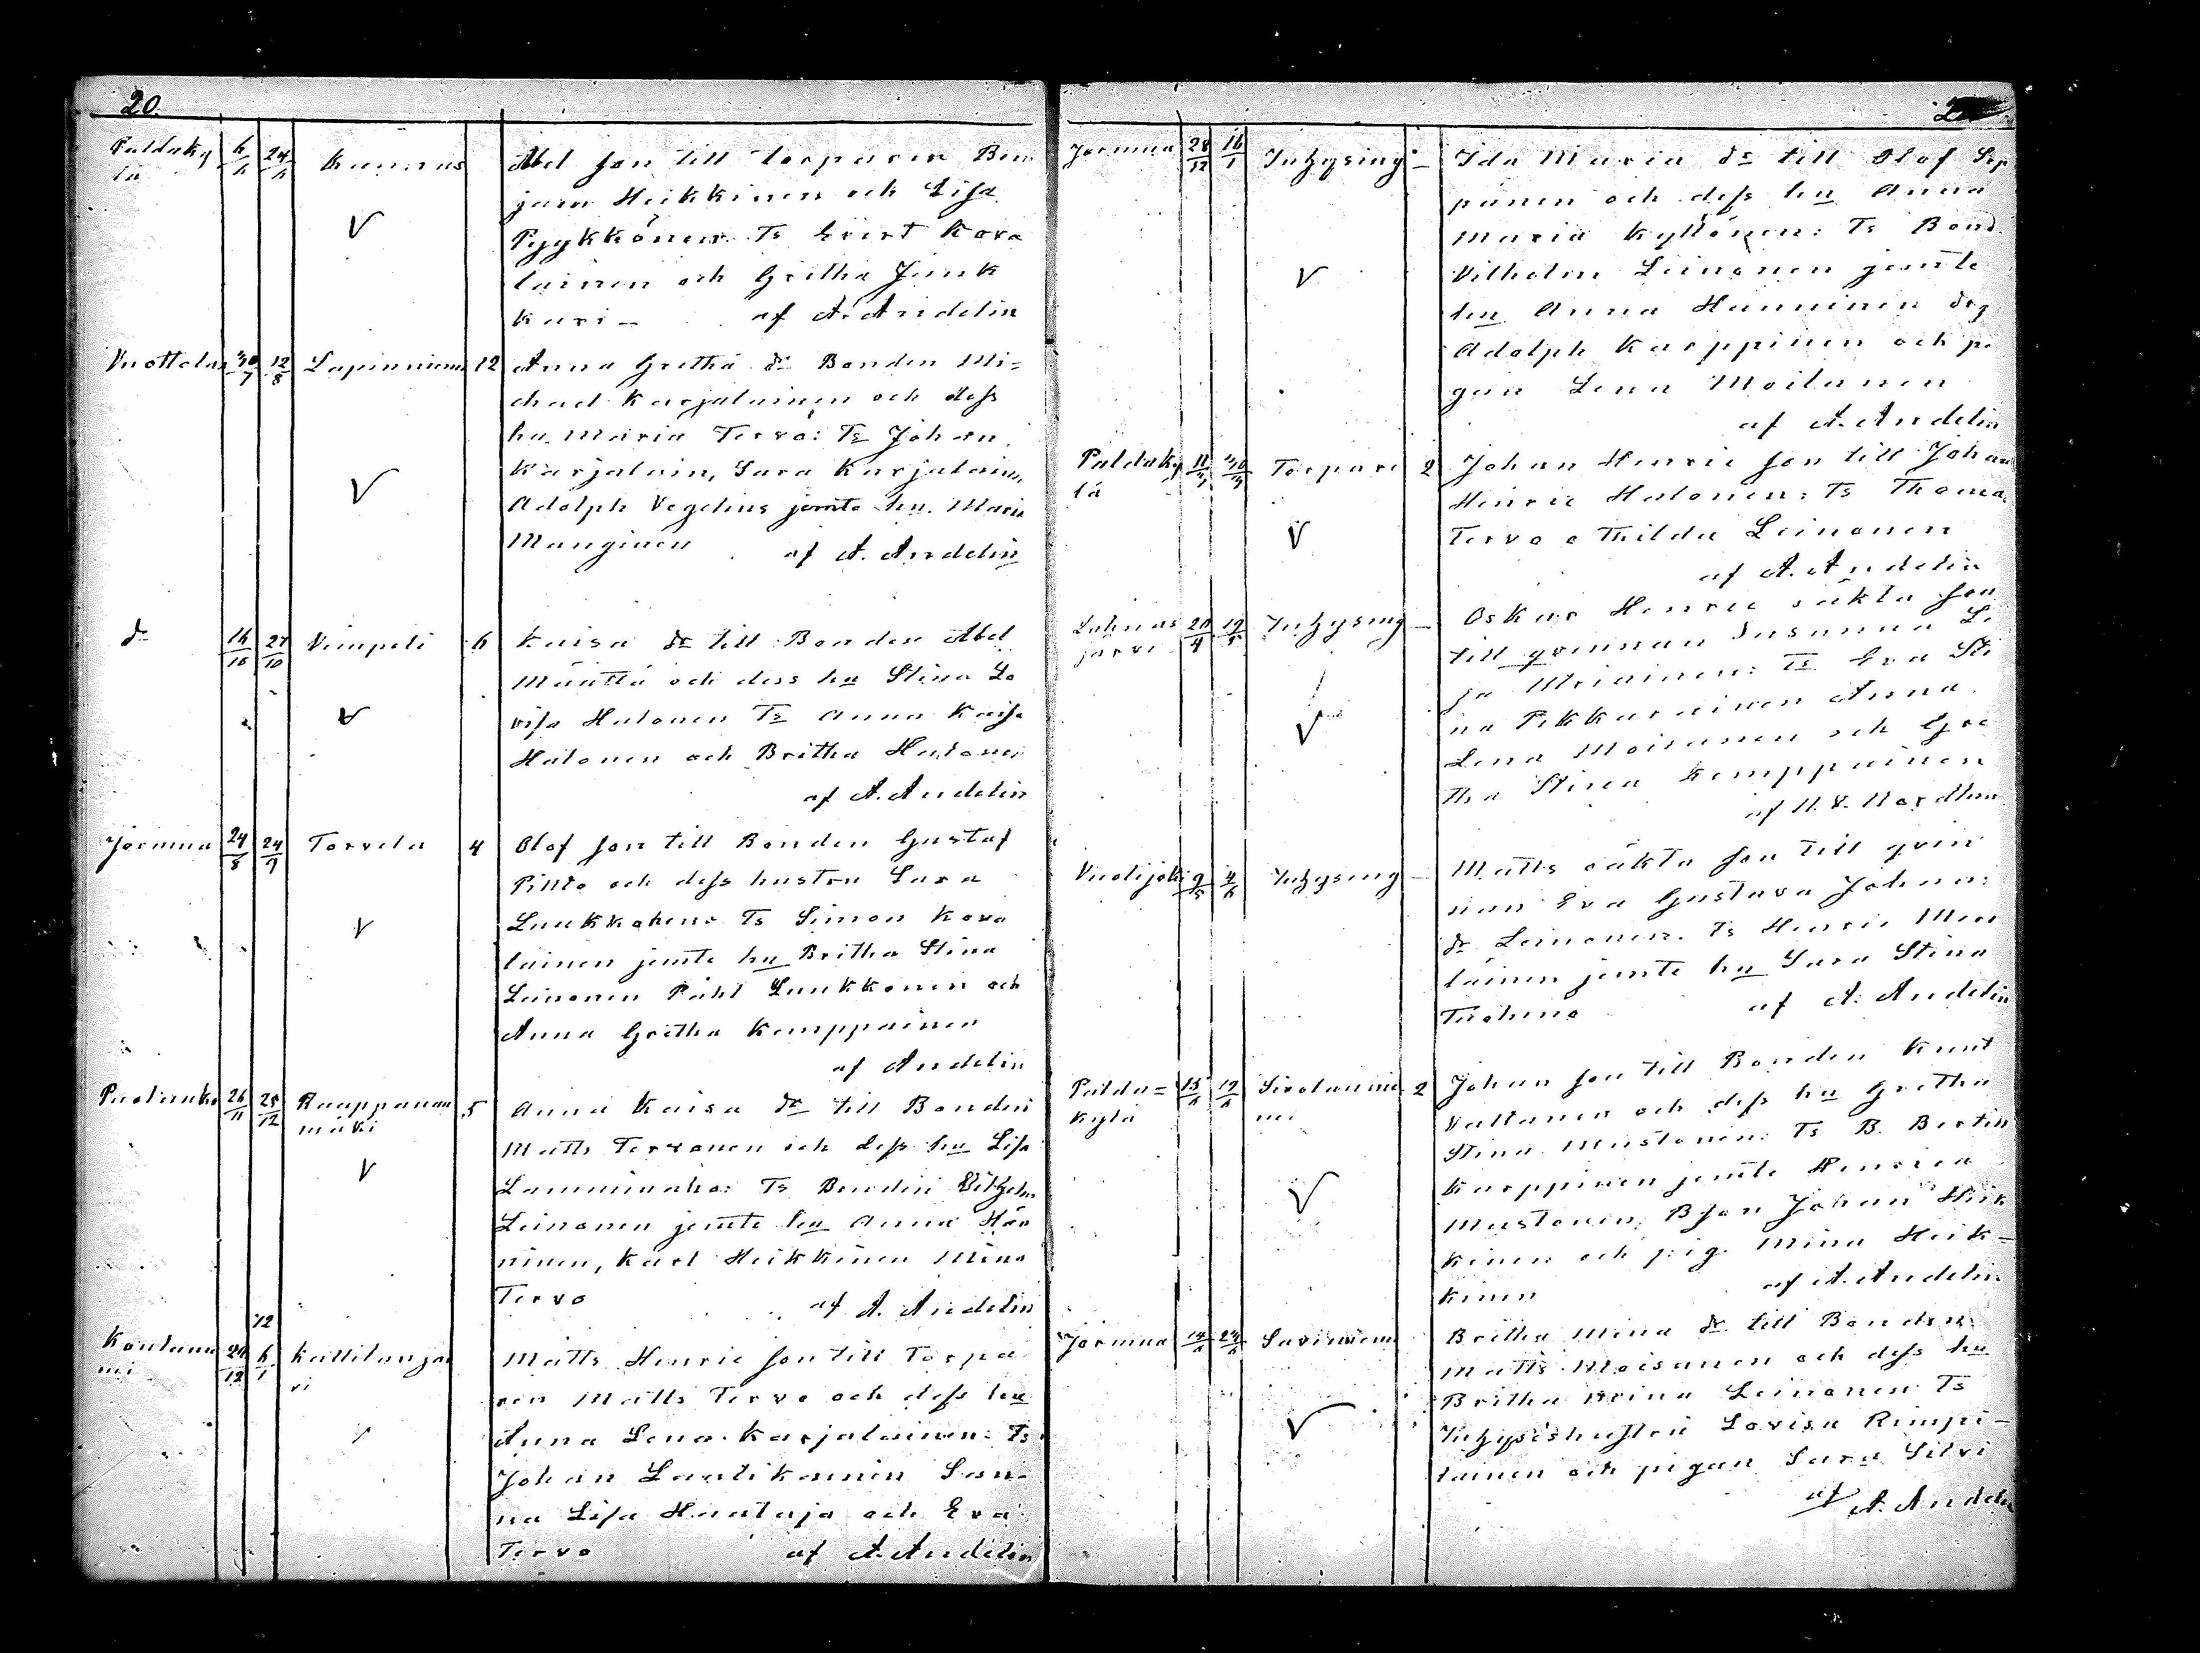 20.
Paldaky
lä
6/6 24/6
Kumpus
Abel son till torparen Ben
jam Heikkinen och Lisa
Pyykkönen Ts Evert Kova
lainen och Gretha Junk
kari – af A. Andelin
Vuottola 30/7 12/8 Lapinniemi 12
Anna Gretha dr Bonden Mi=
chael Karjalainen och dess
hu. Maria Tervo: Ts Johan
Karjalain, Sara Karjalain,
Adolph Vegelius jemte hu. Maria
Manginen af A. Andelin
do 16/10 27/10 Vimpeli 6
Kaisa dr till Bonden Abel
Määttä och dess hu Stina Lo
visa Halonen Ts Anna Kaisa
Halonen och Britha Halonen
af A. Andelin
Jormua 24/8 24/9 Torvela 4
Olof son till Bonden Gustaf
Pintto och dess hustru Sara
Luukkonen: Ts Simon Kova
lainen jemte hu Britha Stina
Leinonen Påhl Luukkonen och
Anna Gretha Kemppainen
af Andelin
Puolanko 26/11 25/12 Raappanan 5
mäki
Anna Kaisa dr till Bonden
Matts Tervonen och dess hu Lisa
Lamminaho: Ts Bonden Vilhelm
Leinonen jemte hu Anna Hän
ninen, Karl Heikkinen Mina
Tervo af A. Andelin
72
Kontiomä
mi 24/12 6/1 Kattilanjär
vi
Matts Henric son till Torpa
ren Matts Tervo och dess hu
Anna Lena Karjalainen: Ts
Johan Lautikainen San
na Lisa Huotaja och Eva
Tervo af A. Andelin
Jormua 28/12 16/1 Inhysing –
Ida Maria dr till Olof Sep
pänen och dess hu Anna
Maria Kyllönen: Ts Bond.
Vilhelm Leinonen jemte
hu Anna Hänninen drg
Adolph Karppinen och pi
gan Lena Moilanen
af A. Andelin
Paldaky
lä Torpare 2
Johan Henric son till Johan
Henric Halonen: Ts Thomas
Tervo o Thilda Leinonen
af A. Andelin
Lahnas
järvi Inhysing –
Oskar Henric oäkta son
till qvinnan Susanna Li
sa Meriainen: Ts Eva Sti
na Pikkarainen Anna
Lena Moisanen och Gre
tha Stina Kemppainen
af H. V. Nordlun
Vuolijoki Inhysing –
Matts oäkta son till qvin
nan Eva Gustava Johans
dr Leinonen. Ts Henric Meri
läinen jemte hu Sara Stina
Tuohino af A. Andelin
Palda=
kylä Sirolannie 2
mi
Johan son till Bonden Knut
Valtanen och dess hu Gretha
Stina Mustonen: Ts B. Bertill
Karppinen jemte Henrica
Mustonen, Bson Johan Heik
kinen och pig. Mina Heik=
kinen af A. Andelin
Jormua Saviniemi
Britha Mina dr till Bonden
Matts Moisanen och dess hu
Britha Stina Leinonen Ts
Inhysishustru Lovisa Rimpi–
lainen och pigan Sara Silvi
af A. Andelin